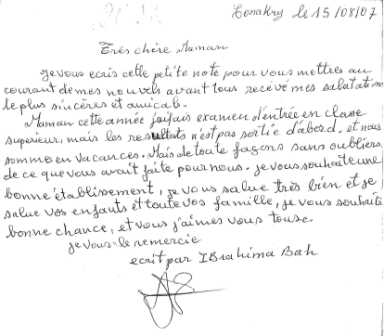 Conakry le 15/08/07
Très chère Maman
Je vous ecris cette petite note pour vous mettres au
courant de mes nouvels avant tous recevé mes salutations
le plus sincères et amicals.
Maman cette année j'aifais examen d'entrée en classe
superieur, mais les resultats n'est pas sortie d'abord, et nous
somme en vacances. Mais de toute façons sans oubliers
de ce que vous avait faite pour nous. je vous souhaite une
bonne établissement, je vous salue très bien et je
salue vos enfants et toute vos famille, je vous souhaite
bonne chance, et vous j'aimes vous tousc.
je vous le remercie
ecrit par IBrahima Bah